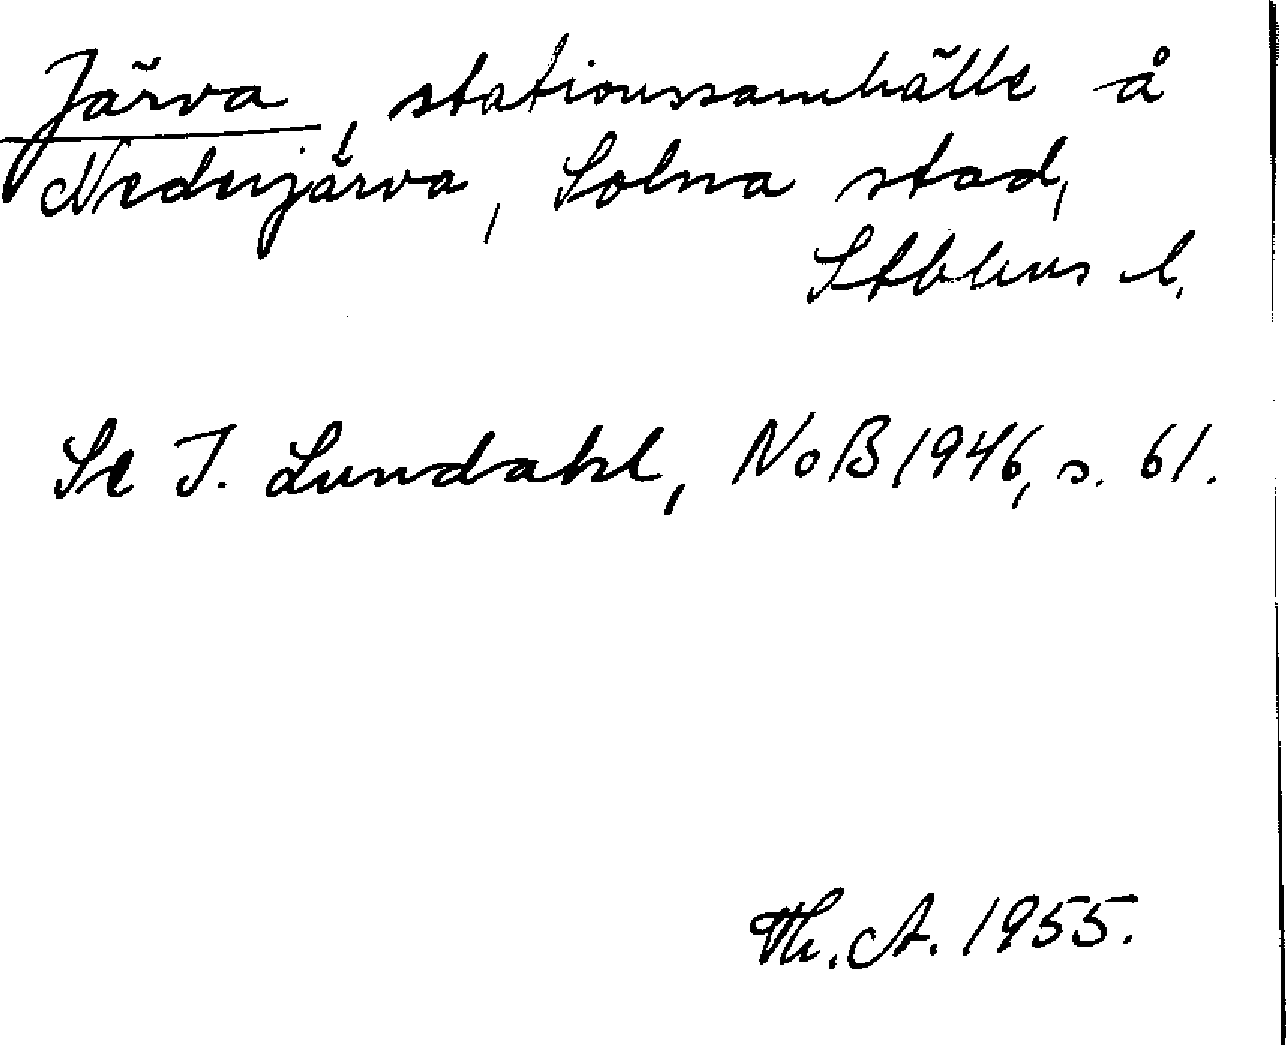 Järva, stationssamhälle å
Nederjärva, Solna stad,
Sthlms l.
Se I. Lundahl, NoB 1946, s. 61.
Th. A. 1955.